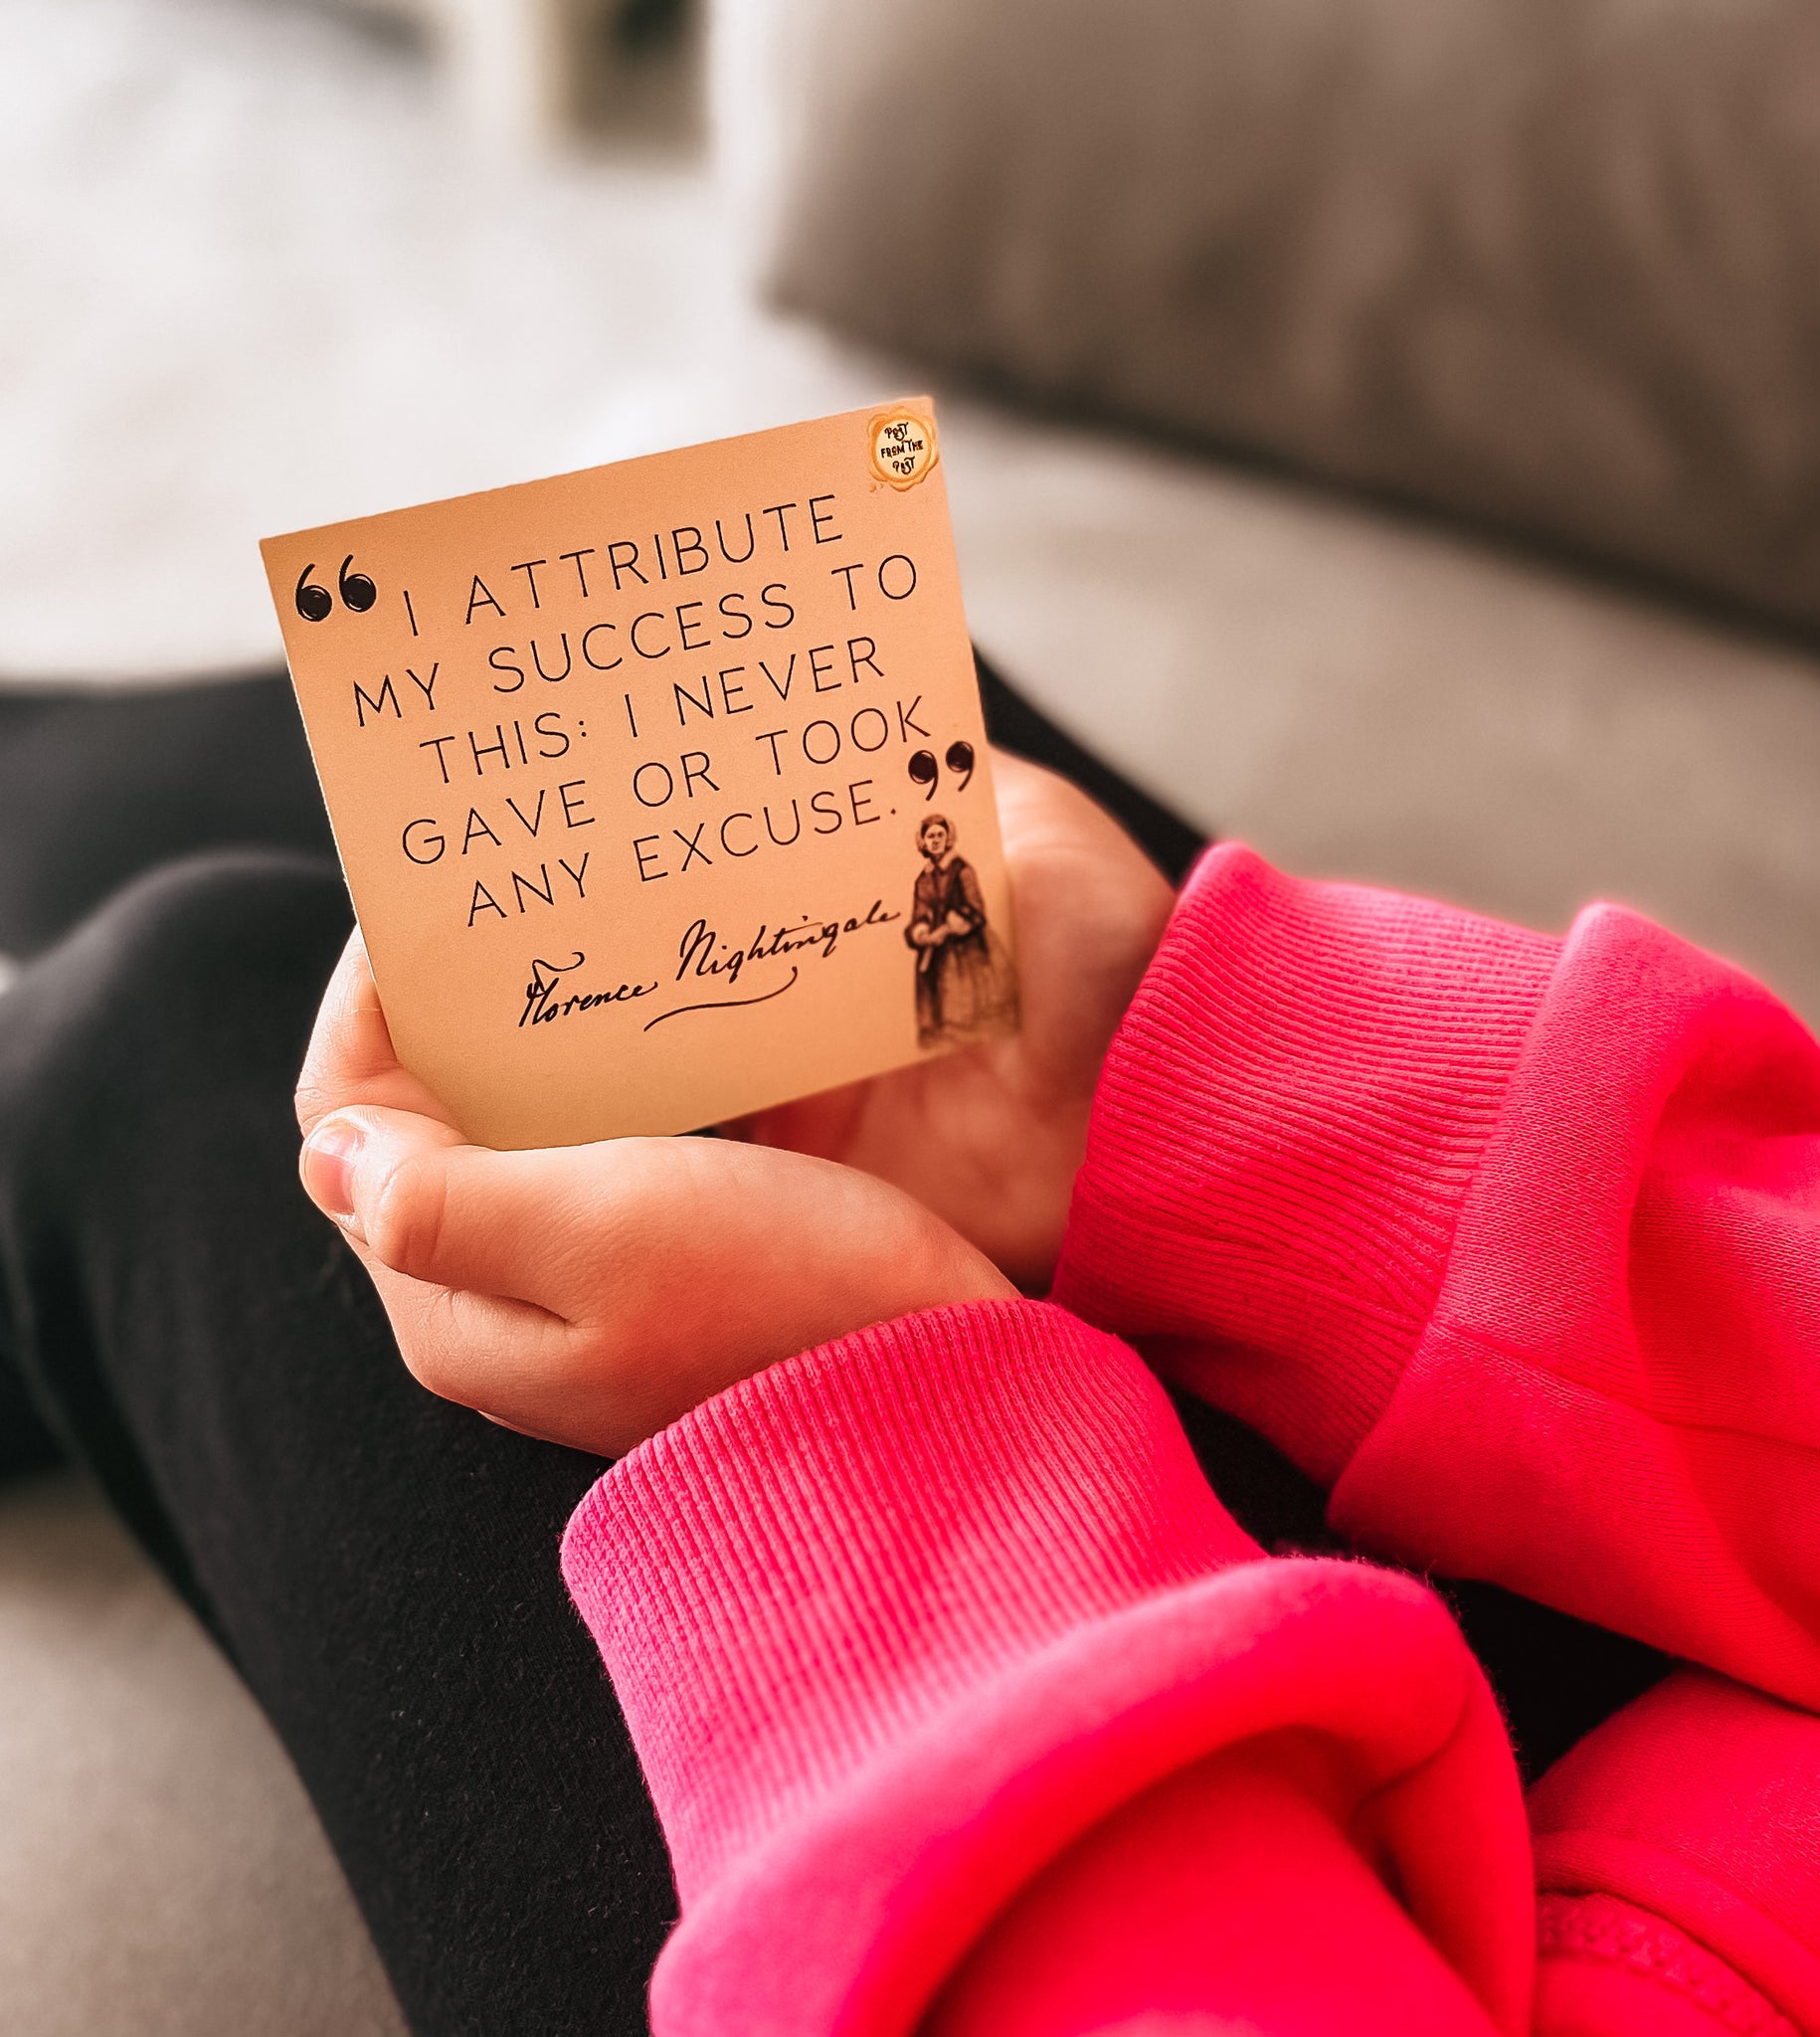 POST
FROM THE
POST
“ I ATTRIBUTE
MY SUCCESS TO
THIS: I NEVER
GAVE OR TOOK
ANY EXCUSE. ”
Florence Nightingale